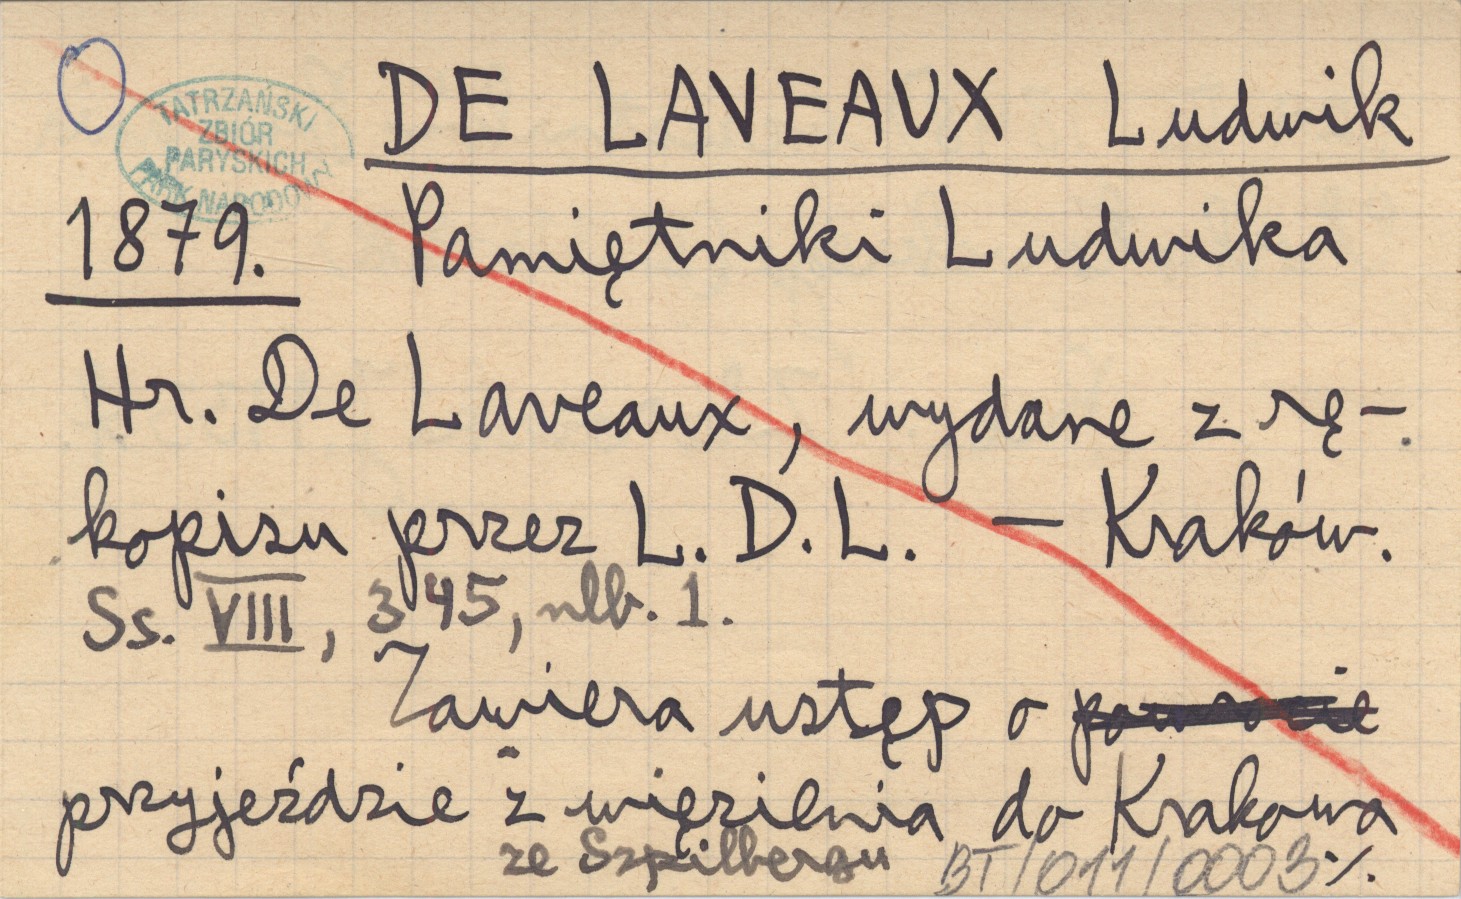 DE LAVEAUX Ludwik
TATRZAŃSKI
ZBIÓR
PARYSKICH
PARK NARODOWY
1879. Pamiętniki Ludwika
Hr. De Laveaux, wydane z rę-
kopisu przez L. D. L. — Kraków.
Ss. VIII, 345, nlb. 1.
Zawiera ustęp o powrocie
przyjeździe z więzienia do Krakowa
ze Szpilbergu BT/011/0003 ./.